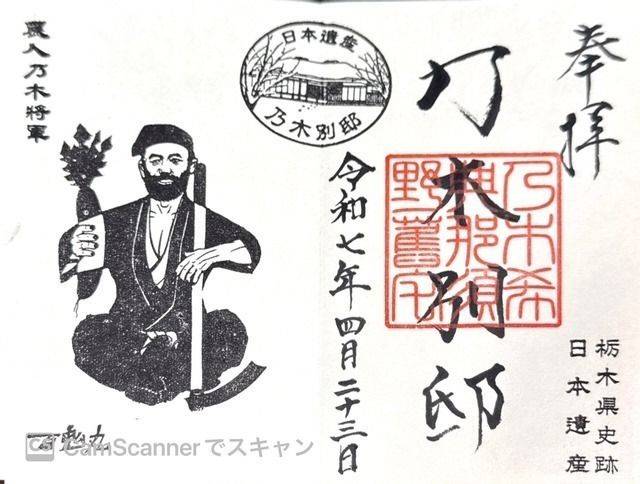 奉拝
栃木県史跡
日本遺産
乃木別邸
乃木希
典那須
野舊宅
令和七年四月二十三日
日本遺産
乃木別邸
農人乃木將軍
CamScannerでスキャン